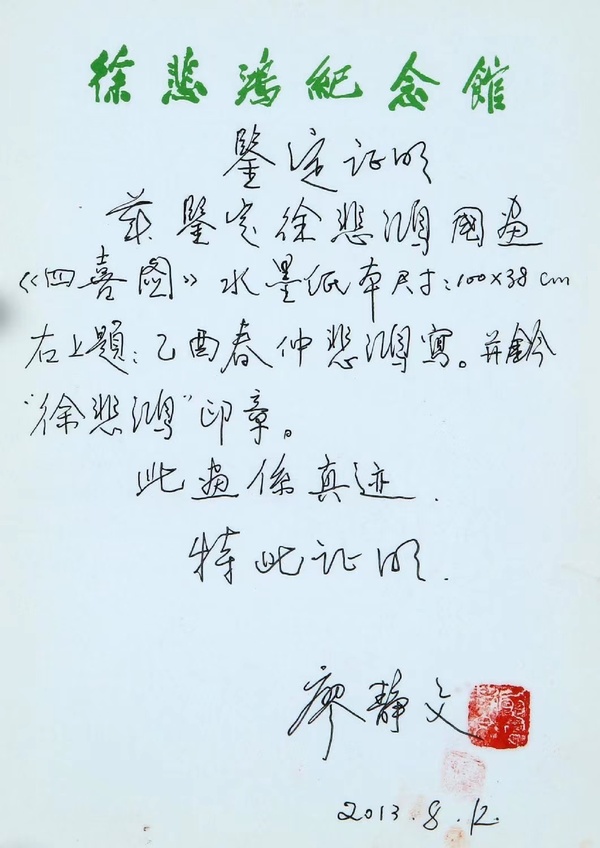 徐悲鴻紀念館
鑒定证明
茲鑒定徐悲鴻國画
《四喜图》水墨纸本尺寸:100×38cm
右上題:乙酉春仲悲鴻寫。并鈐
“徐悲鴻”印章。
此画係真迹.
特此证明.
廖静文
2013.8.12.